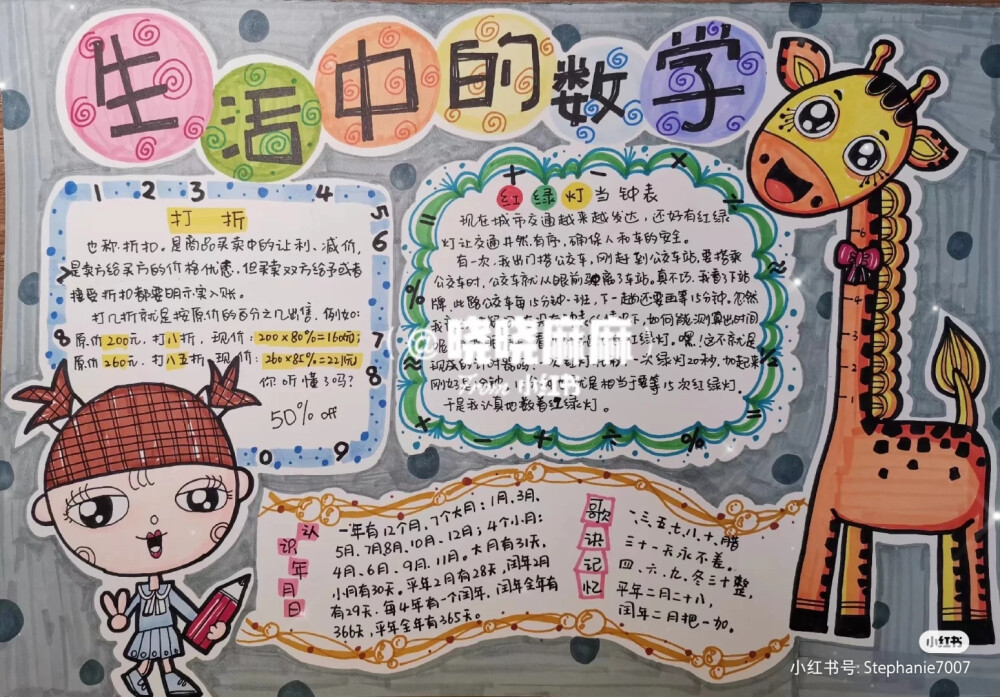 生活中的数学
1 2 3 4
5
6
7
8
7
8
0 9
打折
也称折扣。是商品买卖中的让利、减价,
是卖方给买方的价格优惠。但买卖双方给予或者
接受折扣都要明示实入账。
打几折就是按原价的百分之几出售。例如:
原价200元,打八折,现价:200×80%=160元;
原价260元,打八五折,现价:260×85%=221元
你听懂了吗?
50% off
红绿灯当钟表
现在城市交通越来越发达,还好有红绿
灯让交通井然有序,确保人和车的安全。
有一次,我出门搭公交车,刚赶到公交车站,要搭乘
公交车时,公交车就从眼前驶离了车站。真不巧,我看了下站
牌,此路公交车每15分钟一班,下一趟还要再等15分钟。忽然
如何能测算出时间
红绿灯,嘿!这不就是
一次绿灯20秒,加起来
刚好 就是相当于要等15次红绿灯。
于是我认真地数着红绿灯。
@晓晓麻麻
From 小红书
认识年月日
一年有12个月,7个大月:1月、3月、
5月、7月8月、10月、12月;4个小月:
4月、6月、9月、11月。大月有31天,
小月有30天。平年2月有28天,闰年2月
有29天。每4年有一个闰年,闰年全年有
366天,平年全年有365天。
歌诀记忆
一、三、五、七、八、十、腊
三十一天永不差。
四、六、九、冬三十整,
平年二月二十八,
闰年二月把一加。
6
4
3
2
1
小红书
小红书号: Stephanie7007